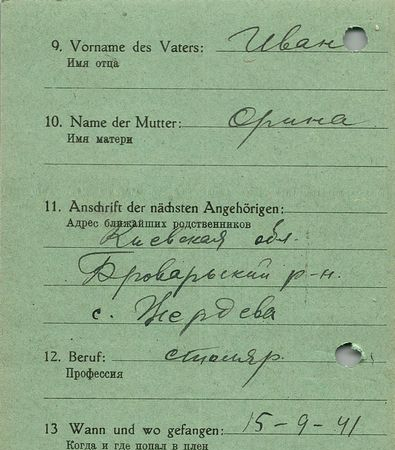 9. Vorname des Vaters: Иван
Имя отца
10. Name der Mutter: Орина
Имя матери
11. Anschrift der nächsten Angehörigen:
Адрес ближайших родственников
Киевская обл.
Броварьский р-н.
с. Жердева
12. Beruf: столяр.
Профессия
13 Wann und wo gefangen: 15-9-41
Когда и где попал в плен